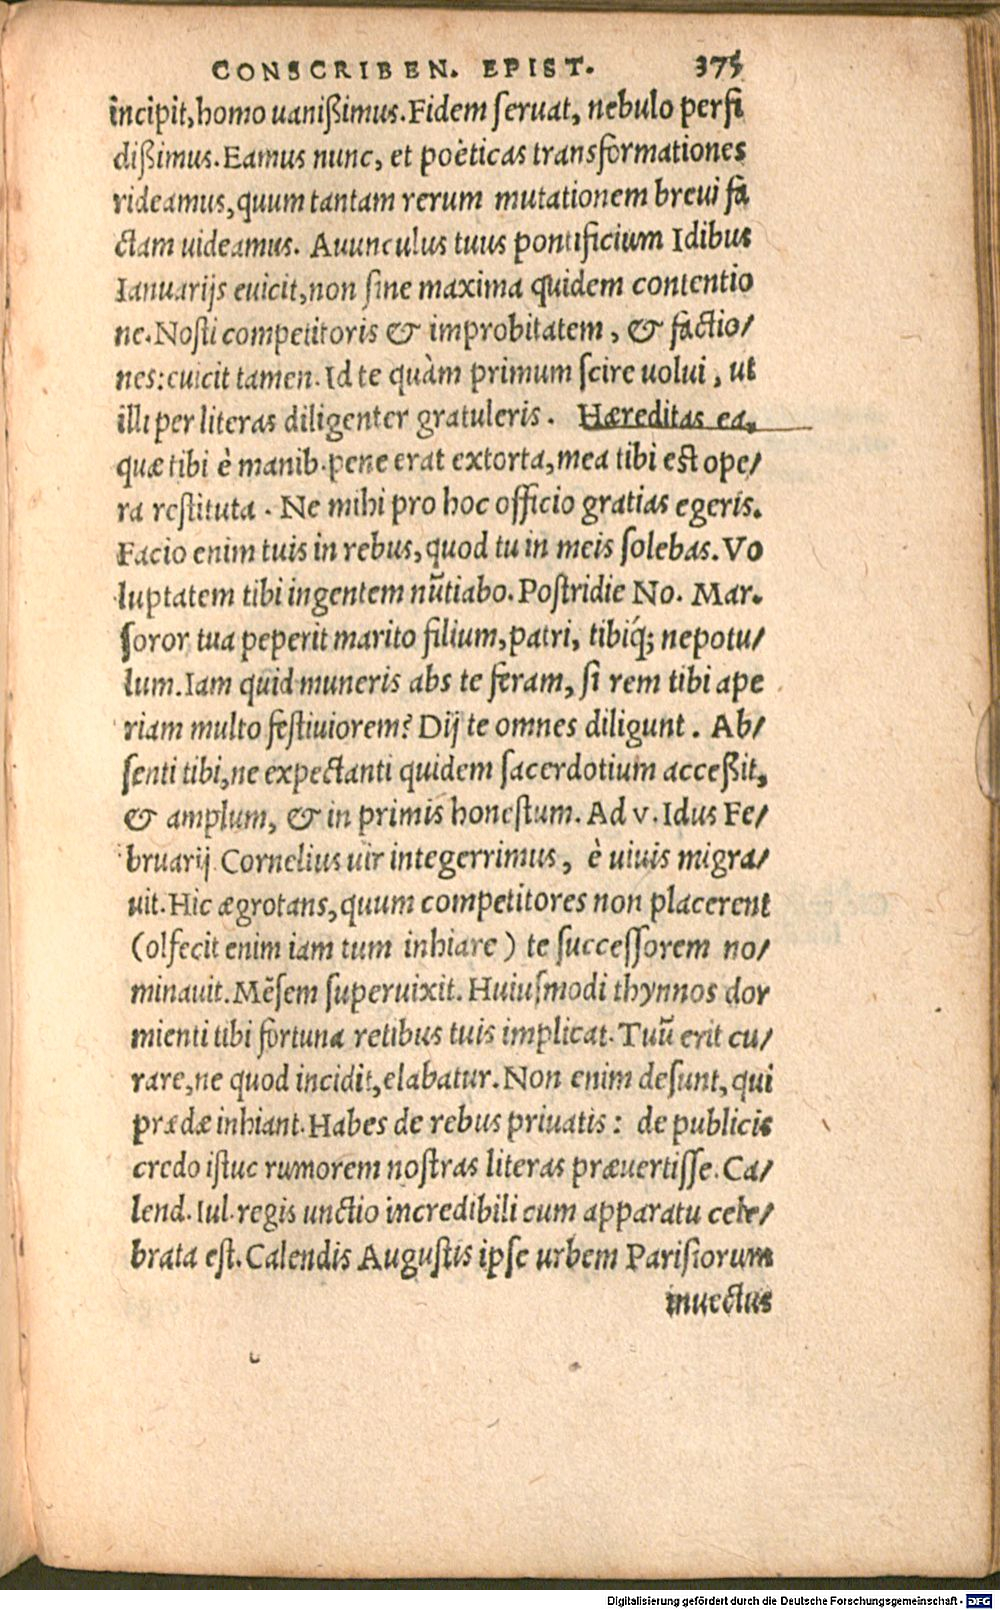 CONSCRIBEN. EPIST. 375
incipit, homo uanißimus. Fidem seruat, nebulo perfi
dißimus. Eamus nunc, et poëticas transformationes
rideamus, quum tantam rerum mutationem breui fa
ctam uideamus. Auunculus tuus pontificium Idibus
Ianuarijs euicit, non sine maxima quidem contentio
ne. Nosti competitoris & improbitatem, & factio/
nes: euicit tamen. Id te quàm primum scire uolui, ut
illi per literas diligenter gratuleris. Hæreditas ea,
quæ tibi è manib. pene erat extorta, mea tibi est ope/
ra restituta. Ne mihi pro hoc officio gratias egeris.
Facio enim tuis in rebus, quod tu in meis solebas. Vo
luptatem tibi ingentem nũtiabo. Postridie No. Mar.
soror tua peperit marito filium, patri, tibiq́; nepotu/
lum. Iam quid muneris abs te feram, si rem tibi ape
riam multo festiuiorem? Dij te omnes diligunt. Ab/
senti tibi, ne expectanti quidem sacerdotium acceßit,
& amplum, & in primis honestum. Ad v. Idus Fe/
bruarij Cornelius uir integerrimus, è uiuis migra/
uit. Hic ægrotans, quum competitores non placerent
(olfecit enim iam tum inhiare) te successorem no/
minauit. Mẽsem superuixit. Huiusmodi thynnos dor
mienti tibi fortuna retibus tuis implicat. Tuũ erit cu/
rare, ne quod incidit, elabatur. Non enim desunt, qui
prædæ inhiant. Habes de rebus priuatis: de publicis
credo istuc rumorem nostras literas præuertisse. Ca/
lend. Iul. regis unctio incredibili cum apparatu cele/
brata est. Calendis Augustis ipse urbem Parisiorum
inuectus
Digitalisierung gefördert durch die Deutsche Forschungsgemeinschaft - DFG